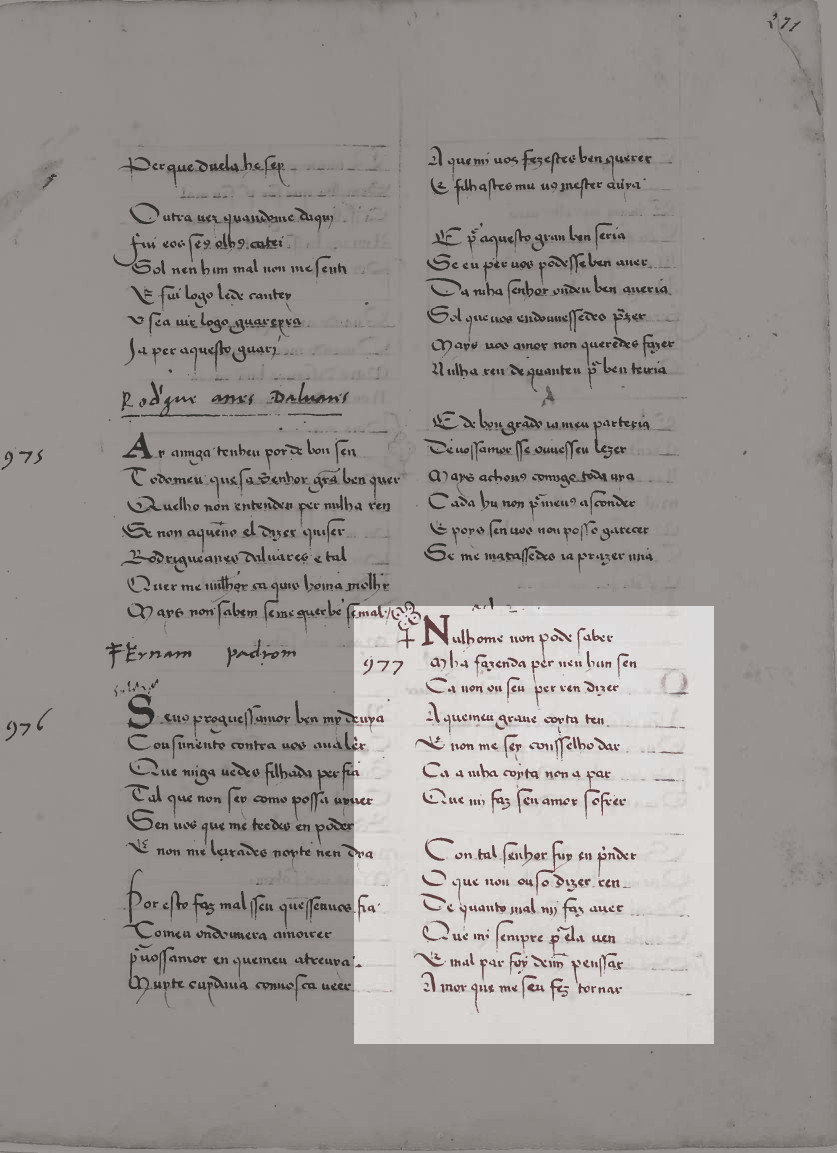 271
Perque duela he sey
Outra uez quandome daqui
fui eos se9 olh9 catei
Sol nen him mal non me senti
E fui logo ledo
v sea uir logo guareyra
Ja per aquesto guari
Rod'gue anes Daluares
975
Ar amiga tenheu por de bon sen
Todomeu que sa Senhor gra ben quer
Quelho non entenden per nulha ren
Se non aque no el dizer quiser
Rodrigueanes daluares e tal
Quer me milhor ca quis homa molhr
Mays non sabem seme quer be se mal
Fernam padrom
976
Se uos proguess amor ben my deuya
Cousimento contra uos aualer
Que miga uedes filhada perfia
Tal que non sey como possa uyuer
Sen uos que me teedes en poder
E non me leixades noyte nen dia
Por esto faz mal sseu que ssenuos fia
Tomeu ondouuera amoirer
p uossamor en quemeu atreuya
Muyto cuydaua conuosca ueer
A quemi uos fezestes ben querer
E filhastes mu us mester
E p aquesto gran ben seria
Se eu per uos podesse ben auer
Da mha senhor onden ben aueria
Sol queuos endouuessedes pzer
Mays uos amor non queredes fazer
Nulha ren de quanteu p ben teiria
E de bon grado ia meu parteria
De uossamor sse ouuesseu lezer
Mays achouos comigo toda uya
Cada hu non pimeus asconder
E poys sen uos non posso garecer
Se me matassedes ia prazer mia
977
Nulhome non pode saber
Mha fazenda per neu hun sen
Ca non ou seu per ren dizer
A quemeu graue coyta ten
E non me sey conssselho dar
Ca a mha coyta non a par
Que mi faz seu amor sofrer
Con tal senhor fuy en pnder
O que non ouso dizer ren
De quanto mal mj faz auer
Que mi sempre p ela uen
E mal par foy demj penssar
Amor que me seu fez tornar